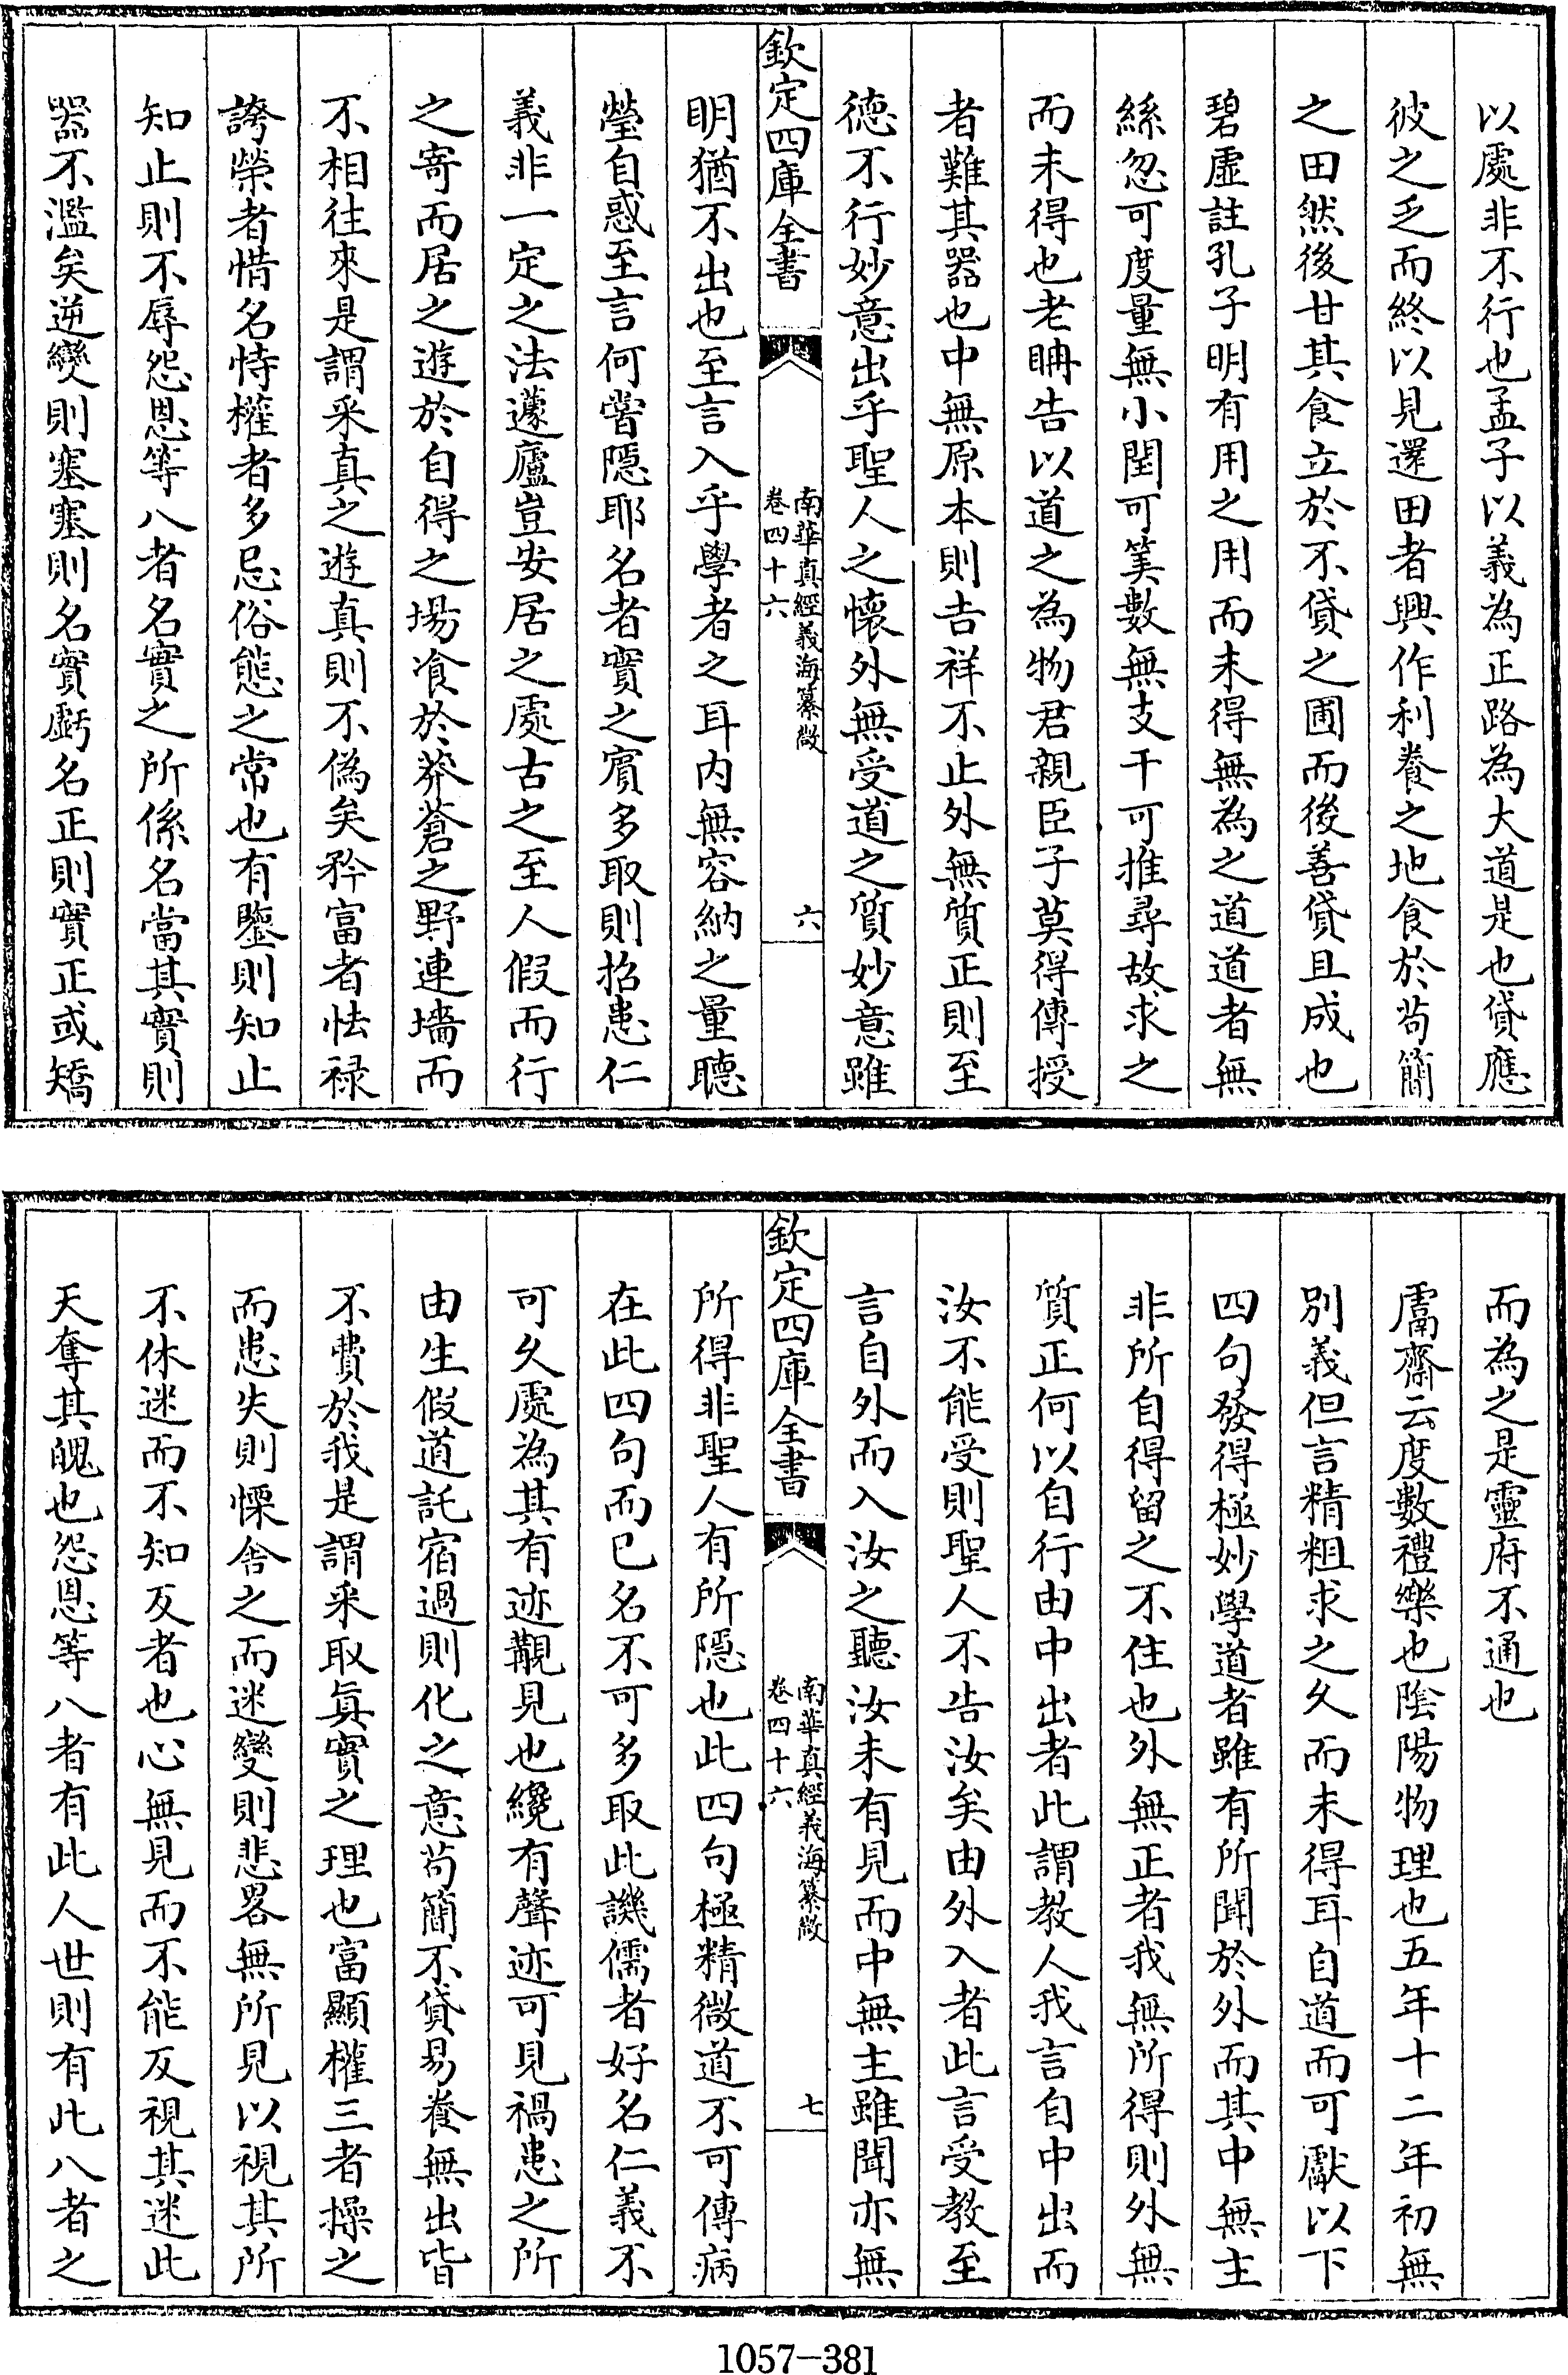 以處非不行也孟子以義為正路為大道是也貸應
彼之乏而終以見還田者興作利養之地食於苟簡
之田然後甘其食立於不貸之圃而後善貸且成也
碧虛註孔子明有用之用而未得無為之道道者無
絲忽可度量無小閏可筭數無支干可推尋故求之
而未得也老聃告以道之為物君親臣子莫得傳授
者難其器也中無原本則吉祥不止外無質正則至
德不行妙意出乎聖人之懷外無受道之質妙意雖
欽定四庫全書
南華真經義海纂微
卷四十六
六
明猶不出也至言入乎學者之耳内無容納之量聽
瑩自惑至言何嘗隱耶名者實之賓多取則招患仁
義非一定之法蘧廬豈安居之處古之至人假而行
之寄而居之遊於自得之場飡於莽蒼之野連墻而
不相往來是謂采真之遊真則不偽矣矜富者怯禄
誇榮者惜名恃權者多忌俗態之常也有鑒則知止
知止則不辱怨恩等八者名實之所係名當其實則
器不濫矣逆變則塞塞則名實虧名正則實正或矯
而為之是靈府不通也
鬳齋云度數禮樂也陰陽物理也五年十二年初無
别義但言精粗求之乆而未得耳自道而可獻以下
四句發得極妙學道者雖有所聞於外而其中無主
非所自得留之不住也外無正者我無所得則外無
質正何以自行由中出者此謂教人我言自中出而
汝不能受則聖人不告汝矣由外入者此言受教至
言自外而入汝之聽汝未有見而中無主雖聞亦無
欽定四庫全書
南華真經義海纂微
卷四十六
七
所得非聖人有所隱也此四句極精微道不可傳病
在此四句而已名不可多取此譏儒者好名仁義不
可乆處為其有迹覯見也纔有聲迹可見禍患之所
由生假道託宿過則化之意苟簡不貸易養無出皆
不費於我是謂采取真實之理也富顯權三者操之
而患失則慄舍之而迷變則悲畧無所見以視其所
不休迷而不知反者也心無見而不能反視其迷此
天奪其魄也怨恩等八者有此人世則有此八者之
1057-381